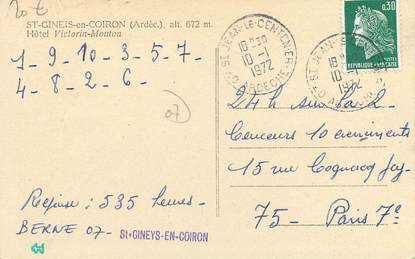 20 €
ST-GINEIS-en-COIRON (Ardèc.), alt. 672 m.
Hôtel Victorin-Mouton
1-9-10-3-5-7-
4-8-2-6-
07
Réponse : 535 heures-
BERNE 07-
St-GINEYS-EN-COIRON
ST JEAN-LE-CENTENIER
18H30
10-1
1972
07 ARDECHE
0,30
REPUBLIQUE FRANÇAISE
POSTES
ST JEAN-LE
18H
10-1
1972
07 ARDECHE
24h sur la 2
Concours 10 evenements
15 rue Cognacq Jay-
75- Paris 7e